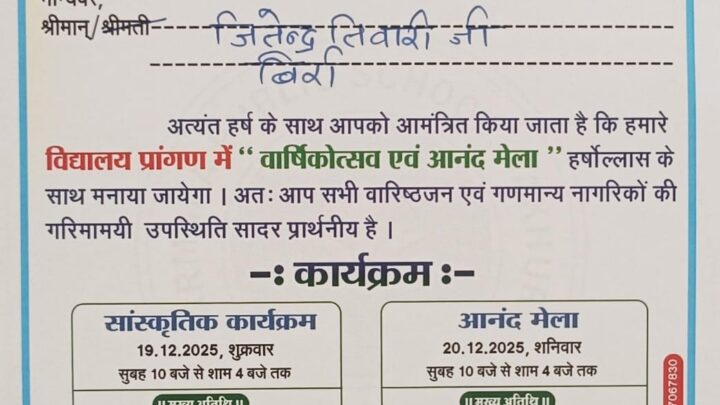 श्रीमान्/श्रीमती जितेन्द्र तिवारी जी
बिर्रा
अत्यंत हर्ष के साथ आपको आमंत्रित किया जाता है कि हमारे
विद्यालय प्रांगण में “ वार्षिकोत्सव एवं आनंद मेला ” हर्षोल्लास के
साथ मनाया जायेगा । अतः आप सभी वारिष्ठजन एवं गणमान्य नागरिकों की
गरिमामयी उपस्थिति सादर प्रार्थनीय है ।
-: कार्यक्रम :-
सांस्कृतिक कार्यक्रम
19.12.2025, शुक्रवार
सुबह 10 बजे से शाम 4 बजे तक
॥ मुख्य अतिथि ॥
आनंद मेला
20.12.2025, शनिवार
सुबह 10 बजे से शाम 4 बजे तक
॥ मुख्य अतिथि ॥
7067830